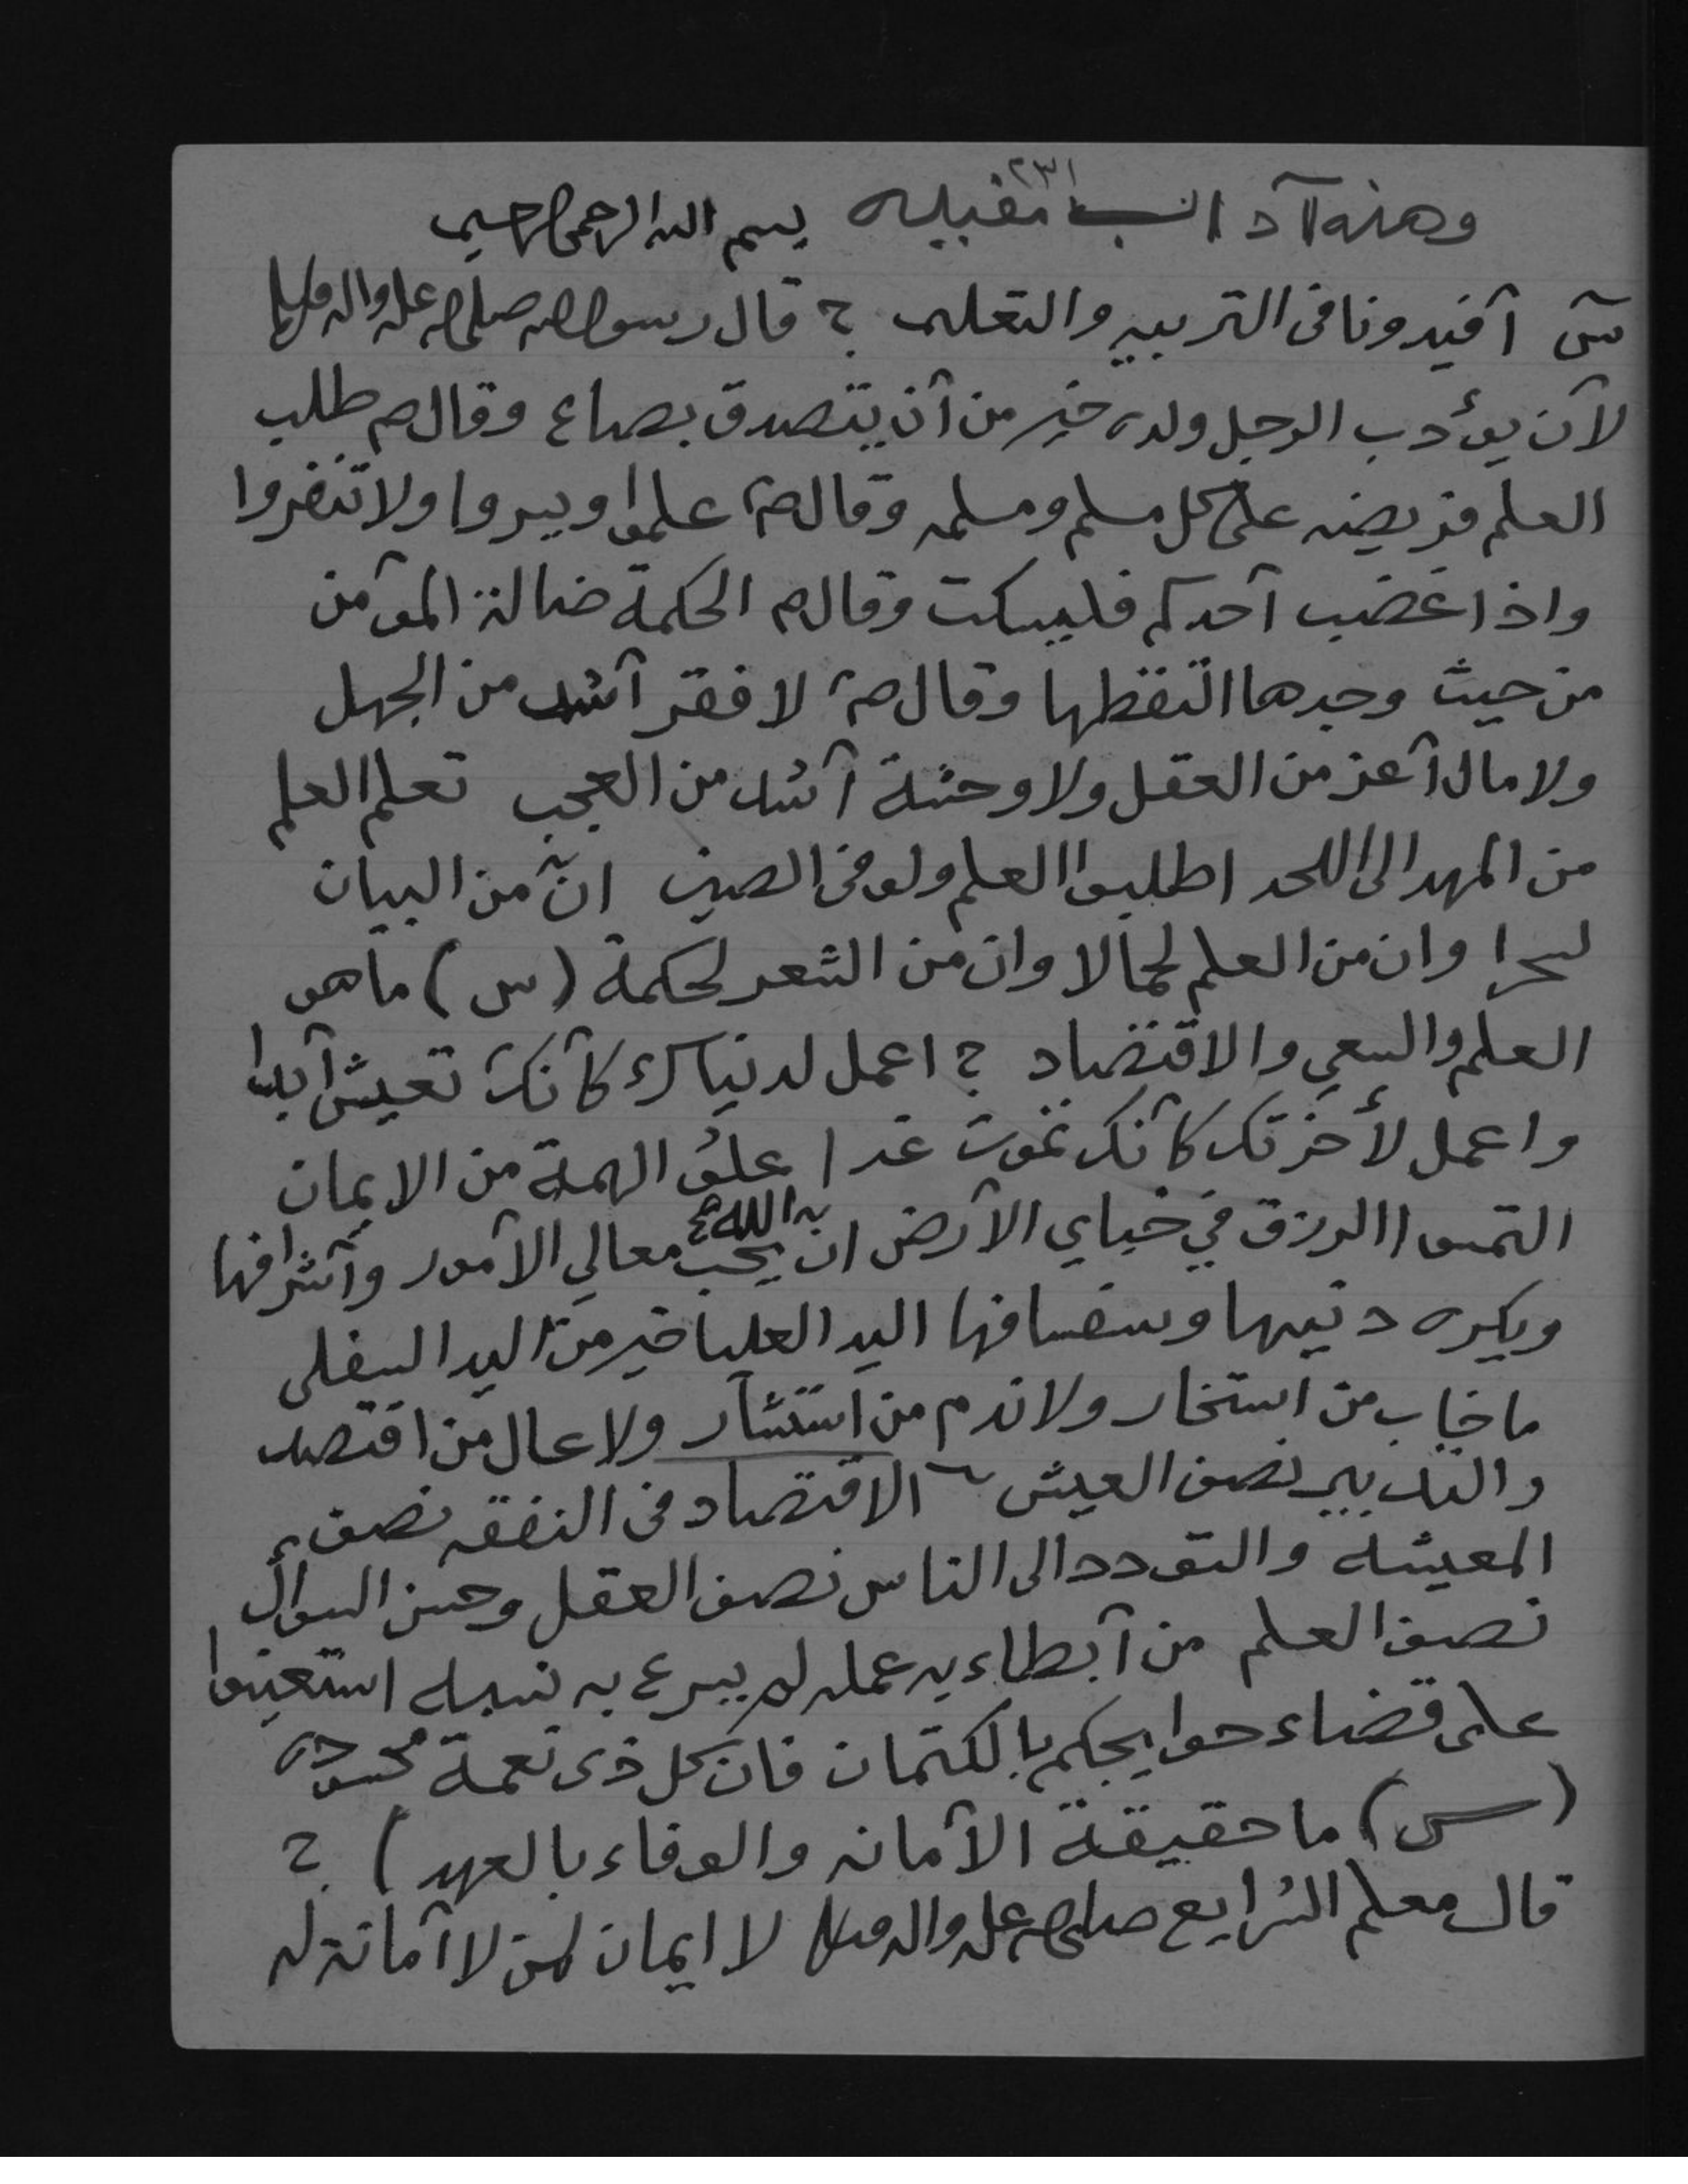 ٢٣١
وهذه آداب مقبله بسم الله الرحمن الرحيم
س آفيدونا فى التربيه والتعليم ؟ قال رسول الله صلى الله عليه واله وسلم
لآن يؤدب الرجل ولده خير من آن يتصدق بصاع وقال ص طلب
العلم فريضه على كل مسلم ومسلمه وقال ص علموا ويسروا ولا تنفروا
واذا غضب آحدكم فليسكت وقال ص الحكمة ضالة المؤمن
من حيث وجدها التقطها وقال ص لا فقر آشد من الجهل
ولا مال آعز من العقل ولا وحشة آشد من العجب تعلم العلم
من المهد الى اللحد اطلبوا العلم ولو فى الصين انّ من البيان
لسحرا وان من العلم لجمالا وان من الشعر لحكمة (س) ما هو
العلم والسعي والاقتضاد ؟ اعمل لدنياك كآنك تعيش آبدا
واعمل لأخرتك كآنك تموت غدا علوُ الهمة من الايمان
التمسوا الرزق في خباي الآرض ان الله يحب معالي الآمور وآشرافها
ويكره دنيها وسفسافها اليد العليا خير من اليد السفلى
ما خاب من استخار ولا ندم من استشآر ولا عال من اقتصد
والتدبير نصف العيش الاقتصاد فى النفقه نصف
المعيشه والتودد الى الناس نصف العقل وحسن السوأل
نصف العلم من آبطاء به عمله لم يسرع به نسبه استعينوا
على قضاء حوايجكم بالكتمان فان كل ذى نعمة محسود
(س) ما حقيقة الآمانه والوفاء بالعهد ) ؟
قال معلم الشرايع صلى الله عليه واله وسلم لا ايمان لمن لا آمانة له